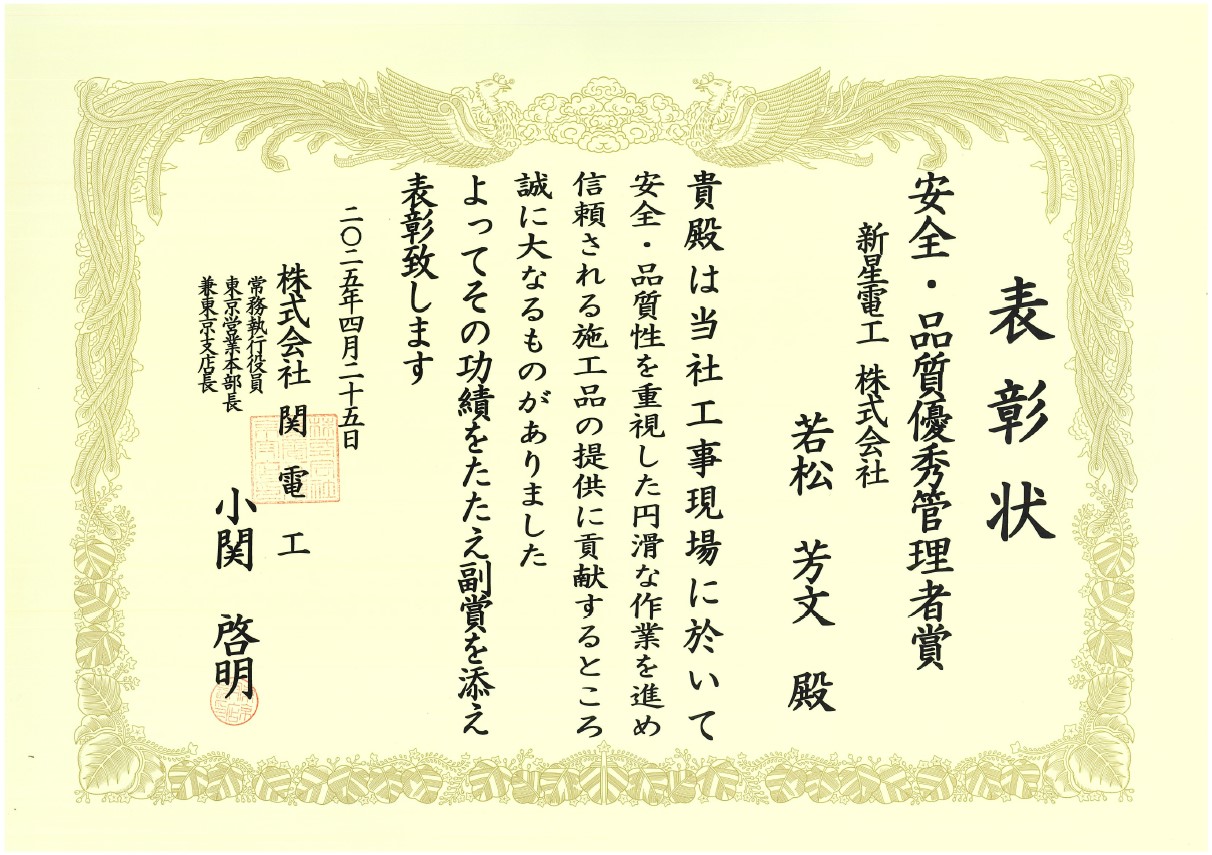 表彰状
安全・品質優秀管理者賞
新星電工 株式会社
若松 芳文 殿
貴殿は当社工事現場に於いて
安全・品質性を重視した円滑な作業を進め
信頼される施工品の提供に貢献するところ
誠に大なるものがありました
よってその功績をたたえ副賞を添え
表彰致します
二〇二五年四月二十五日
株式会社 関電工
常務執行役員
東京営業本部長
兼東京支店長
小関 啓明